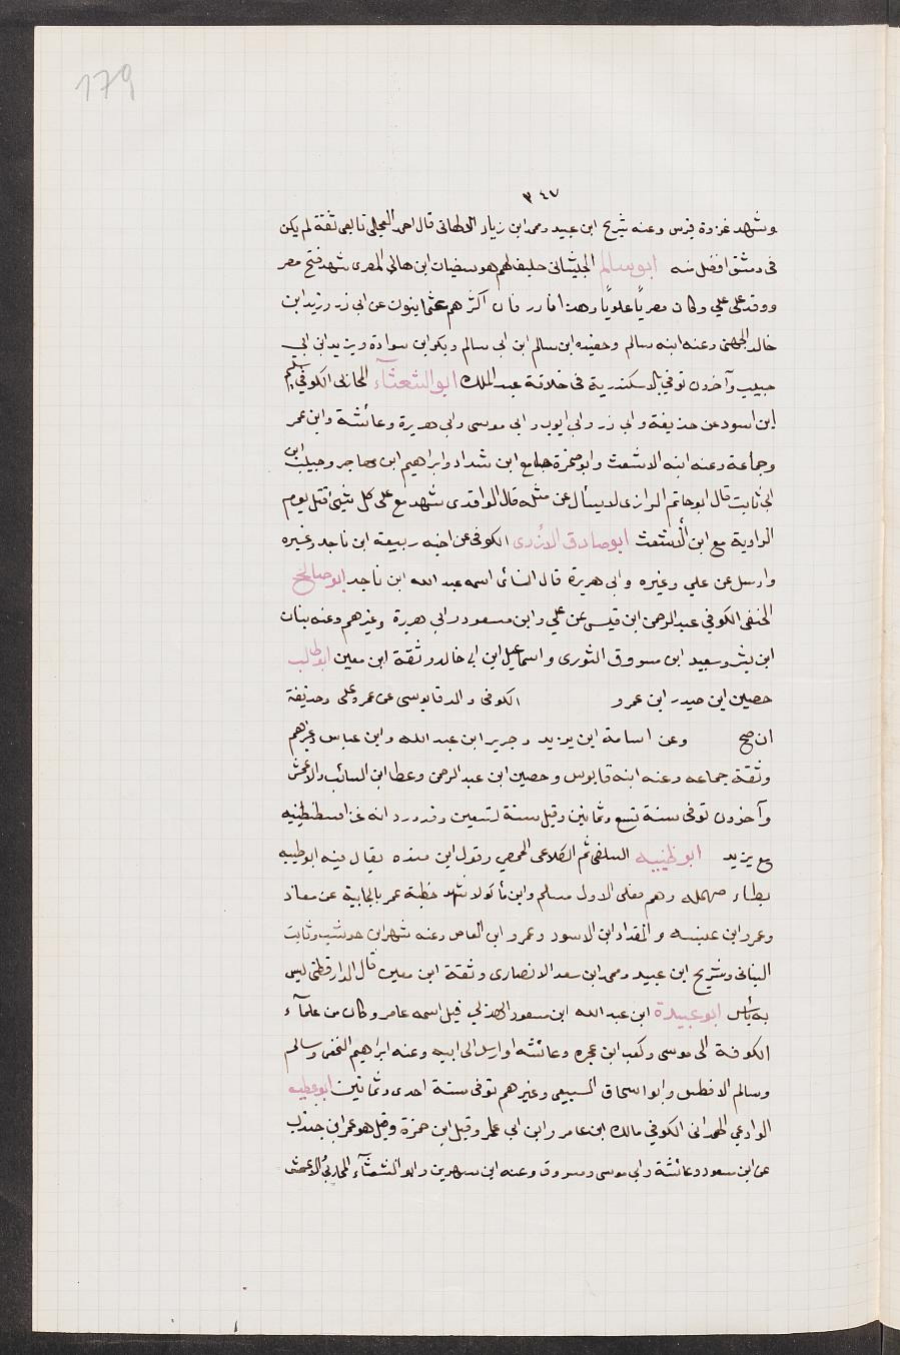 179
٣٤٧
وشهد غزوة قبرس وعنه شريح ابن عبيد ومحمد ابن زياد الالهانى قال احمد العجلى تابعى ثقة لم يكن
فى دمشق افضل منه ابو سالم الجيشانى حليف لهم هو سفيان ابن هانى المصرى شهد فتح مصر
ووفد على علي وكان مصرياً علوياً وهذا نادر فان اكثرهم عثمانيون عن ابى ذر وزيد ابن
خالد الجهنى وعنه ابنه سالم وحفيده ابن سالم ابن ابى سالم وبكر ابن سوادة ويزيد ابن ابى
حبيب وآخرون توفي بالاسكندرية فى خلافة عبد الملك ابو الشعثآء المحاربى الكوفي سليم
ابن اسود عن حذيفة وابى ذر وابى ايوب وابى موسى وابى هريرة وعائشة وابن عمر
وجماعة وعنه ابنه الاشعث وابو صخرة جامع ابن شداد وابراهيم ابن مهاجر وحبيب ابن
ابى ثابت قال ابو حاتم الرازى لا يسأل عن مثله قال الواقدى شهد مع على كل شيئ قتل يوم
الزاوية مع ابن الأشعث ابو صادق الازدى الكوفى عن اخيه ربيعة ابن ناجد وغيره
وارسل عن علي وغيره وابى هريرة قال النسائى اسمه عبد الله ابن ناجد ابو صالح
الحنفى الكوفي عبد الرحمن ابن قيس عن علي وابن مسعود وابى هريرة وغيرهم وعنه بيان
ابن بشر وسعيد ابن مسروق الثورى واسماعيل ابن ابى خالد وثقة ابن معين ابو طالب
حصين ابن ابن عمرو الكوفى والد قابوسى عن عمر وعلى وحذيفة
ان صح وعن اسامة ابن يزيد وجرير ابن عبد الله وابن عباس وغيرهم
وثقة جماعه وعنه ابنه قابوس وحصين ابن عبد الرحمن وعطا ابن السائب والاعمش
وآخرون توفى سنة تسع وثمانين وقيل سنة تسعين وقد ورد انه غزا قسطنطينيه
مع يزيد ابو ظبيه السلفى ثم الكلاعى الحمصي وقول ابن منده يقال فيه ابو طيبه
بطاء مهمله وهم فعلى الاول مسلم وابن ماكولا شهد خطبة عمر بالجابية عن معاذ
وعمرو ابن عبسه والمقداد ابن الاسود وعمرو ابن العاص وعنه شهر ابن حوشب وثابت
البنانى وشريح ابن عبيد ومحمد ابن سعد الانصارى وثقة ابن معين قال الدارقطنى ليس
به بأس ابو عبيدة ابن عبد الله ابن مسعود الهذلي قيل اسمه عامر وكان من علمآء
الكوفة الى موسى وكعب ابن عجره وعائشه وارسل الى ابيه وعنه ابراهيم النخعى وسالم
وسالم الافطس وابو اسحاق السبيعى وغيرهم توفى سنة احدى وثمانين ابو عطيه
الوادعي الهمدانى الكوفي مالك ابن عامر وابن ابى عامر وقيل ابن حمزة وقيل هو عمر ابن جندب
عن ابن مسعود وعائشة وابى موسى ومسروق وعنه ابن سيرين وابو الشعثآء المحاربى والاعمش